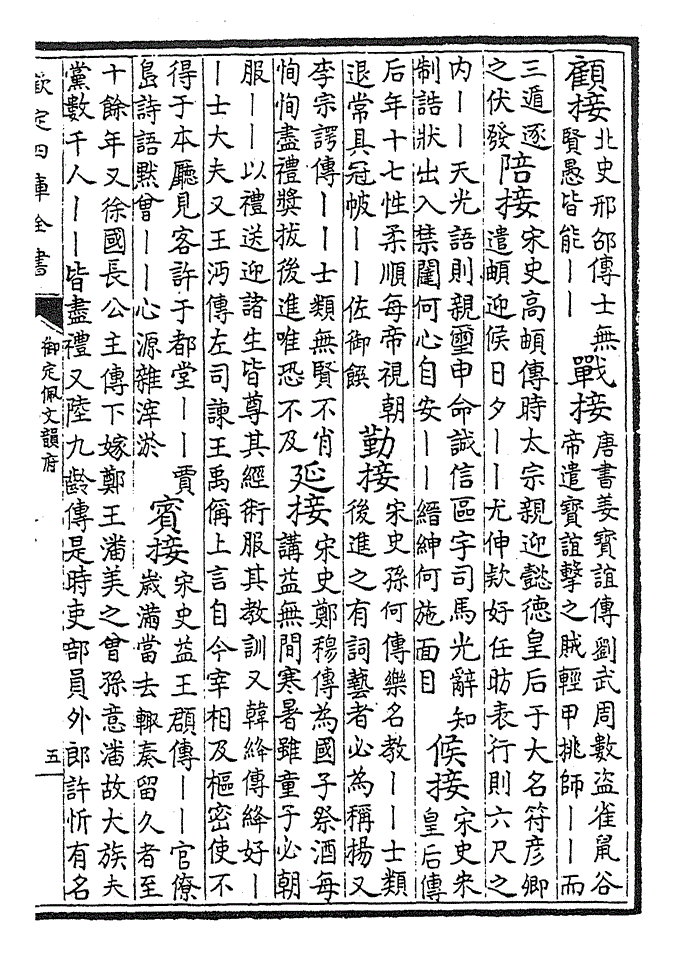 顧接
北史邢邵傳士無
賢愚皆能丨丨
戰接
唐書姜寶誼傳劉武周數盜雀鼠谷
帝遣寶誼擊之賊輕甲挑師丨丨而
三遁逐
之伏發
陪接
宋史高頔傳時太宗親迎懿德皇后于大名符彥卿
遣頔迎侯日夕丨丨尤伸欵好任昉表行則六尺之
内丨丨天光語則親璽申命誠信區宇司馬光辭知
制誥狀出入禁闥何心自安丨丨縉紳何施面目
候接
宋史朱
皇后傳
后年十七性柔順每帝視朝
退常具冠帔丨丨佐御饌
勤接
宋史孫何傳樂名教丨丨士類
後進之有詞藝者必為稱揚又
李宗諤傳丨丨士類無賢不肖
恂恂盡禮獎拔後進唯恐不及
延接
宋史鄭穆傳為國子祭酒每
講益無間寒暑雖童子必朝
服丨丨以禮送迎諸生皆尊其經術服其教訓又韓絳傳絳好丨
丨士大夫又王沔傳左司諫王禹偁上言自今宰相及樞密使不
得于本廳見客許于都堂丨丨賈
島詩語黙曾丨丨心源雜滓淤
賓接
宋史益王頵傳丨丨官僚
歲滿當去輒奏留久者至
十餘年又徐國長公主傳下嫁鄭王潘美之曾孫意潘故大族夫
黨數千人丨丨皆盡禮又陸九齡傳是時吏部員外郎許忻有名
欽定四庫全書
御定佩文韻府
五